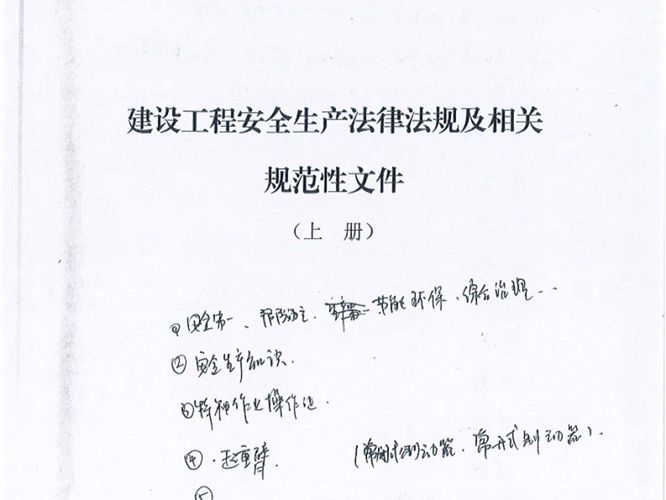 建设工程安全生产法律法规及相关
规范性文件
（上 册）
①安全第一、预防为主、节能环保、综合治理..
②安全生产知识.
③特种作业操作证.
④.起重臂. (常闭式制动器、常开式制动器).
⑤